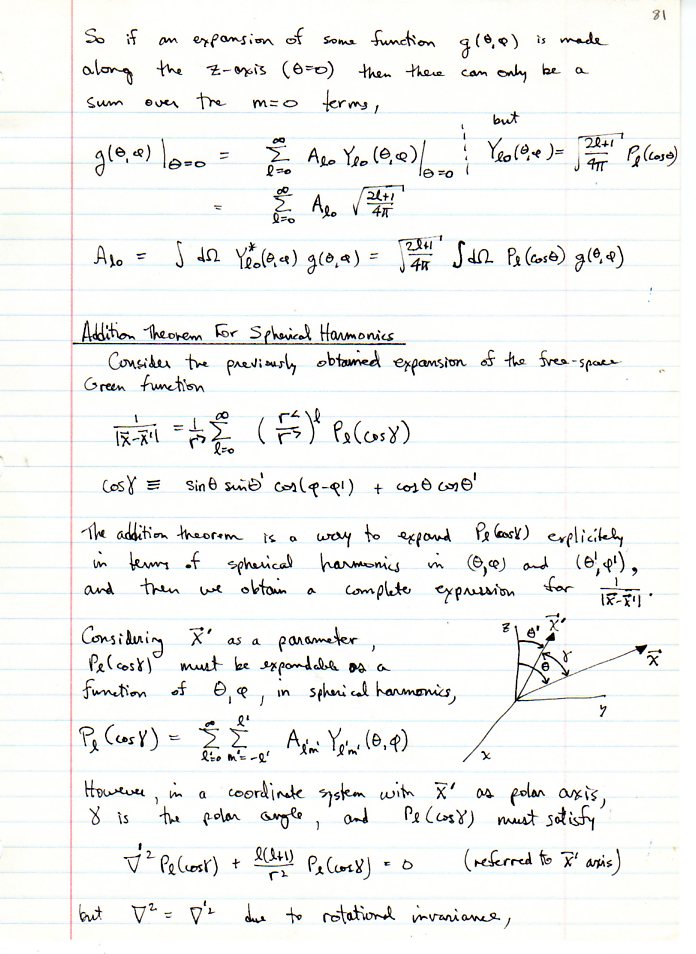 81
So if an expansion of some function g(θ,φ) is made
along the z-axis (θ=0) then there can only be a
sum over the m=0 terms,
g(θ,φ)|_{θ=0} = Σ_{l=0}^{∞} A_{l0} Y_{l0}(θ,φ)|_{θ=0} ¦ but Y_{l0}(θ,φ) = √((2l+1)/4π) P_l(cosθ)
= Σ_{l=0}^{∞} A_{l0} √((2l+1)/4π)
A_{l0} = ∫ dΩ Y*_{l0}(θ,φ) g(θ,φ) = √((2l+1)/4π) ∫ dΩ P_l(cosθ) g(θ,φ)
Addition Theorem For Spherical Harmonics
Consider the previously obtained expansion of the free-space
Green function
1/|x⃗-x⃗'| = 1/r^> Σ_{l=0}^{∞} (r^</r^>)^l P_l(cosγ)
cosγ ≡ sinθ sinθ' cos(φ-φ') + cosθ cosθ'
The addition theorem is a way to expand P_l(cosγ) explicitely
in terms of spherical harmonics in (θ,φ) and (θ',φ'),
and then we obtain a complete expression for 1/|x⃗-x⃗'|.
Considering x⃗' as a parameter,
P_l(cosγ) must be expandable as a
function of θ,φ, in spherical harmonics,
P_l(cosγ) = Σ_{l'=0}^{∞} Σ_{m'=-l'}^{l'} A_{l'm'} Y_{l'm'}(θ,φ)
z θ' x⃗'
θ γ x⃗
y
x
However, in a coordinate system with x⃗' as polar axis,
γ is the polar angle, and P_l(cosγ) must satisfy
∇'² P_l(cosγ) + l(l+1)/r² P_l(cosγ) = 0 (referred to x⃗' axis)
but ∇² = ∇'² due to rotational invariance,